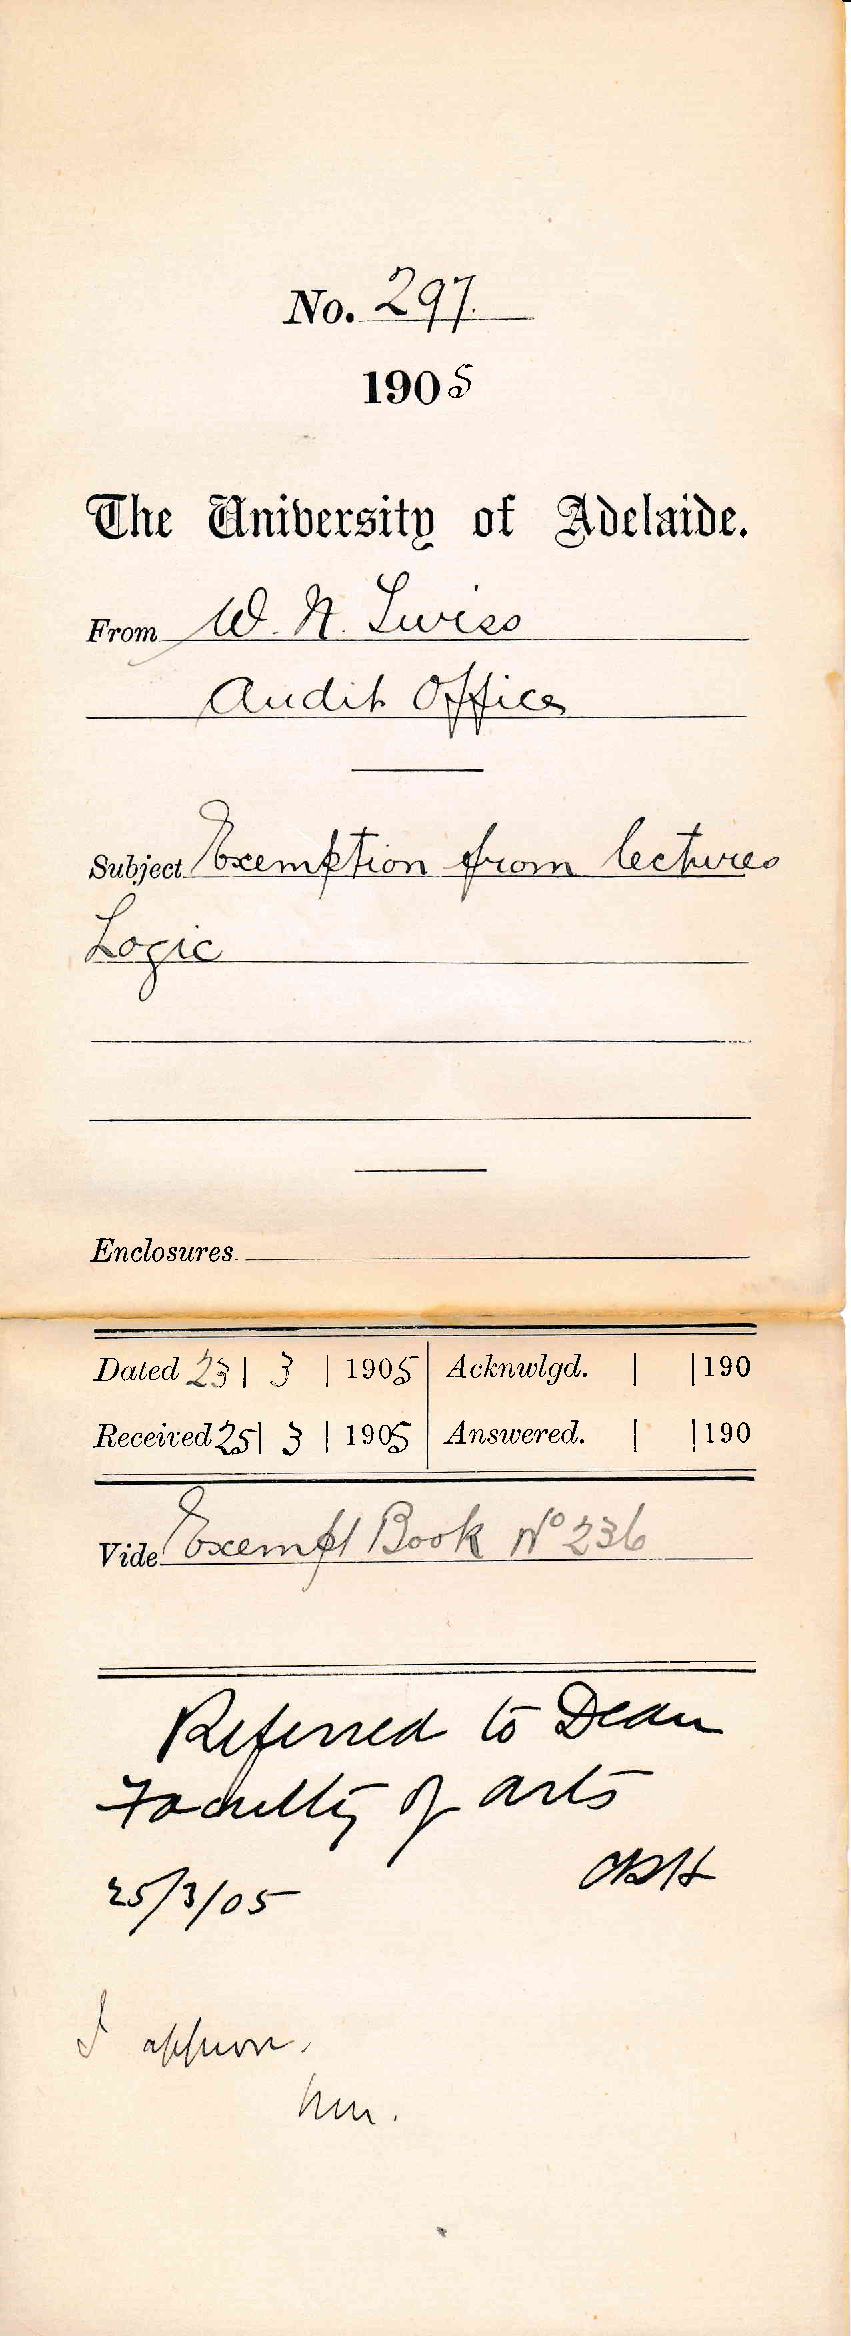 No. 297.
1905
The University of Adelaide.
From W. N. Twiss
Audit Office
Subject Exemption from lectures
Logic
Enclosures
Dated 23 | 3 | 1905 Acknwlgd. | | 190
Received 25 | 3 | 1905 Answered. | | 190
Vide Exempt Book No 236
Referred to Dean
Faculty of Arts
25/3/05 CRH
I approve.